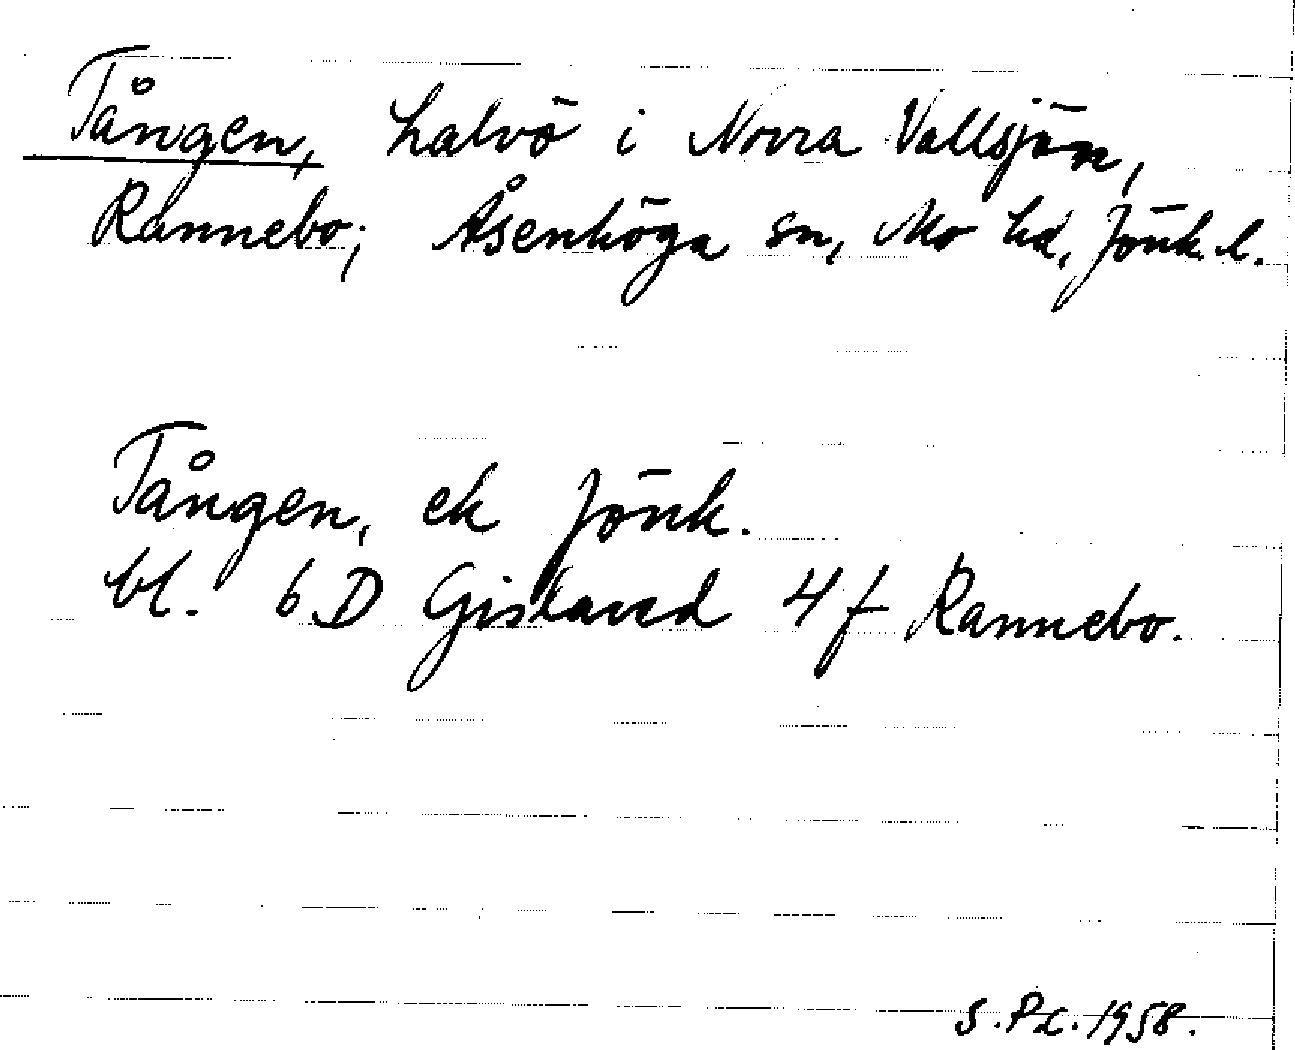 Tången, halvö i Norra Vallsjön,
Rannebo; Åsenhöga sn, Mo hd, Jönk. l.
Tången, ek Jönk.
bl. 6 D Gislaved 4 f Rannebo.
1958.